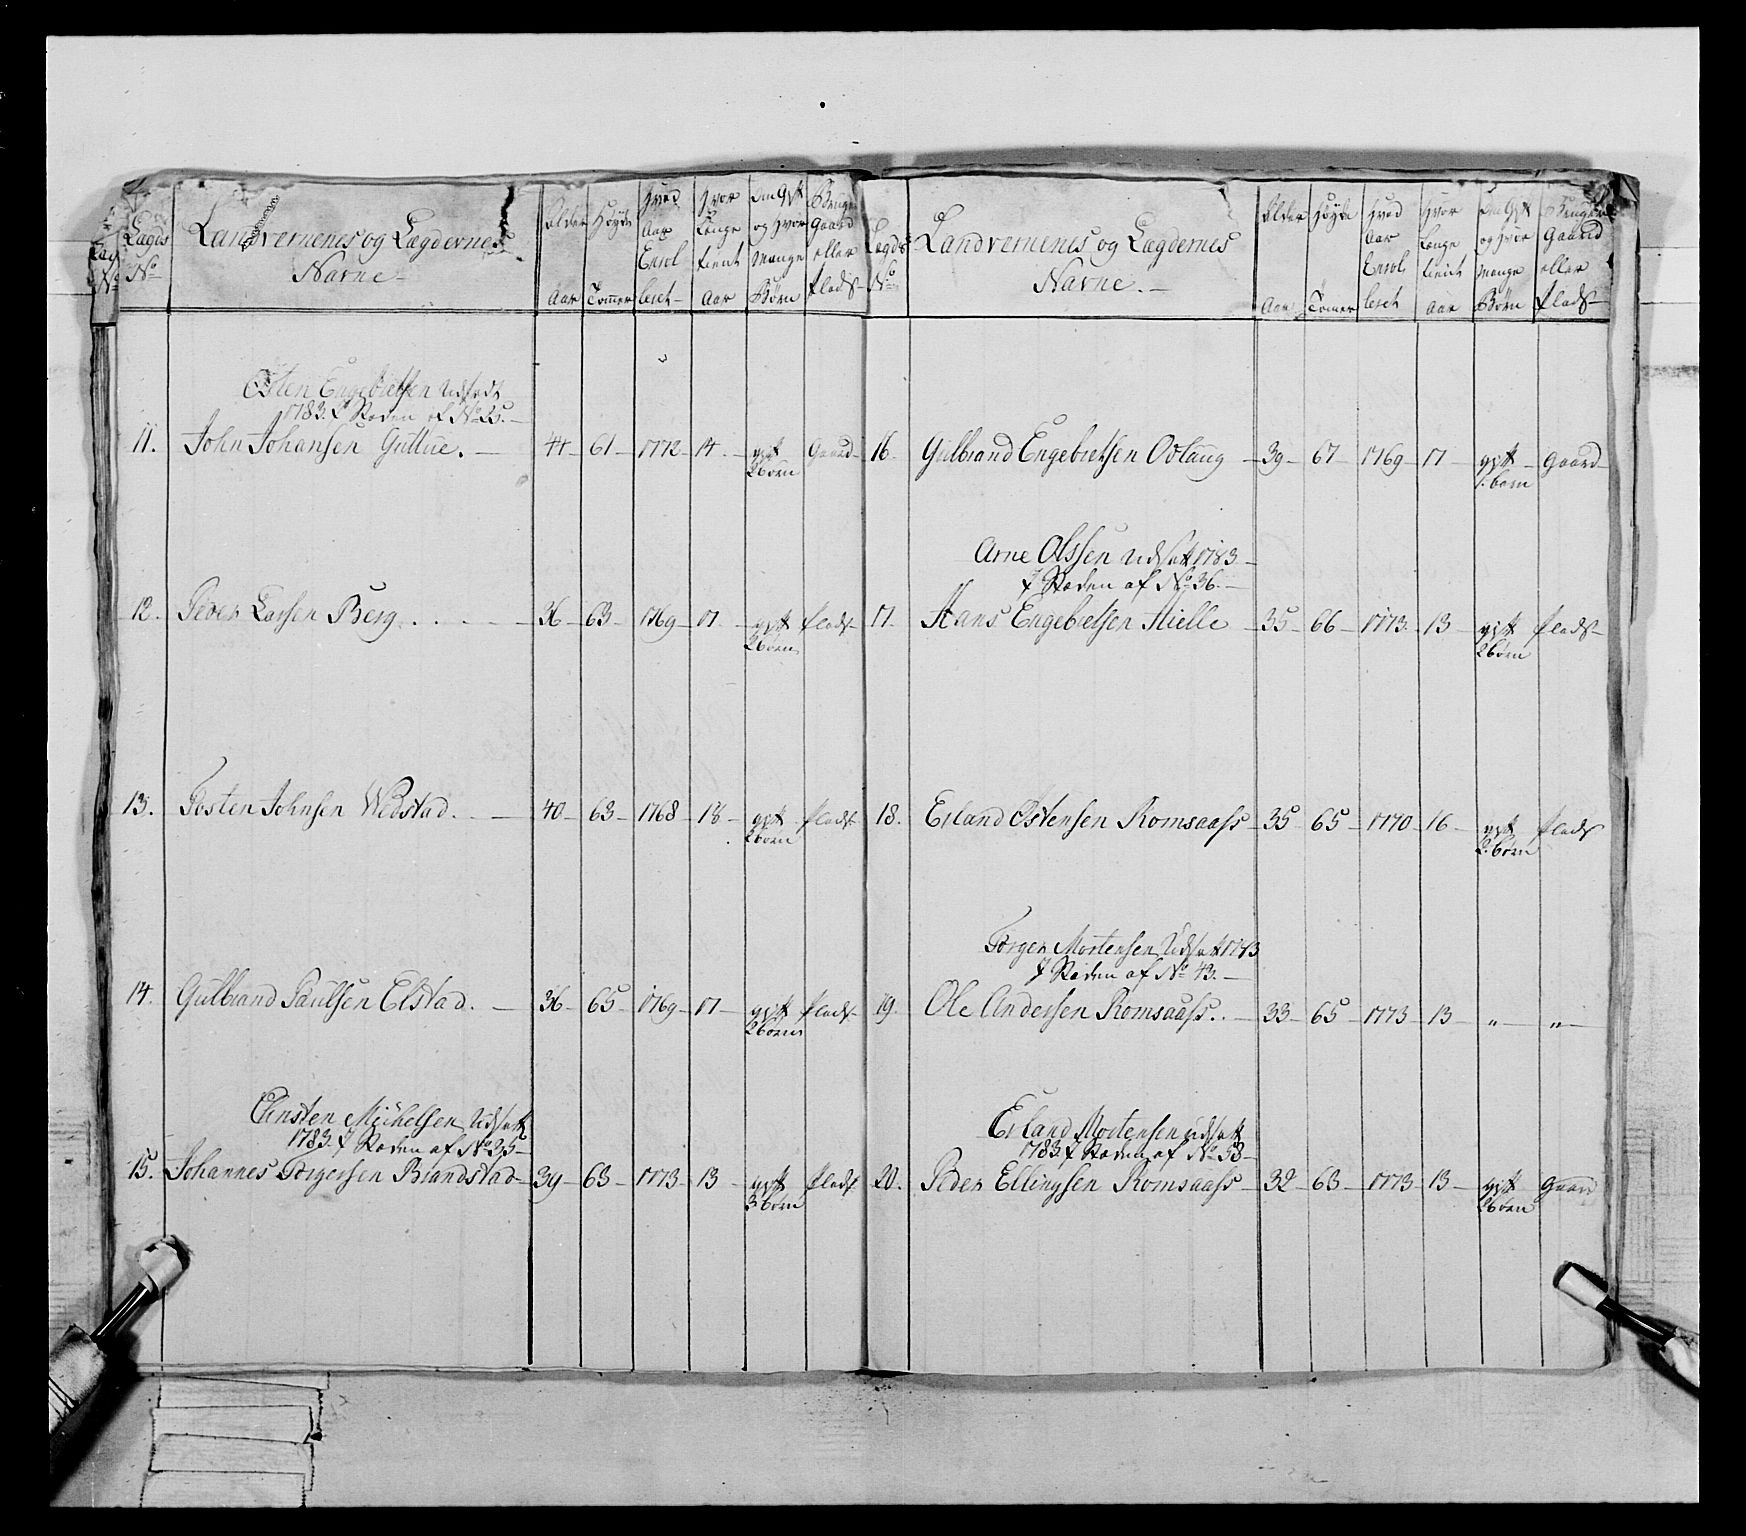 Lægds No
Landvernenes og Lægdernes Navne
Alder Aar
Høyde Tommer
Hvad Aar Enrolleret
Hvor Længe tient Aar
Om Gift og Hvor Mange Børn
Bruger Gaard eller Plads
Østen Engebretsen Udsadt
1783. I Stæden af No 25.
11. John Johansen Guttue. 44 61 1772 14. gift Gaard
2 børn
12. Peder Larsen Berg 36 63 1769 17. gift Plads
2 børn
13. Tosten Johnsen Wedstad. 40 63 1768 18 gift Plads
2 børn
14. Gulbrand Paulsen Elstad. 36 65 1769 17 gift Plads
2 børn
Christen Michelsen Udsatt
1783. I Stæden af No 35
15. Johannes Torgersen Brandstad 39 63 1773 13 gift Plads
3 børn
Lægds No
Landvernenes og Lægdernes Navne.
Alder Aar
Høyde Tommer
Hvad Aar Enrolleret
Hvor Længe tient Aar
Om Gift og Hvor Mange Børn
Bruger Gaard eller Plads
16. Gulbrand Engebretsen Odlaug 39 67 1769 17 gift Gaard
1. barn
Arne Olssen Udsatt 1783
I Stæden af No 36.
17. Hans Engebretsen Hielle 35 66 1773. 13 gift Plads
2 børn
18. Erland Østensen Romsaass 35 65 1770 16 gift Plads
2. børn
Torger Mortensen Udsatt 1773
I Stæden af No 43.
19. Ole Andersen Romsaass. 33 65 1773 13 " "
Erland Mortensen udsatt
1783. I Stæden af No 58
20. Peder Ellingsen Romsaass 32 63 1773 13 gift Gaard
2 børn